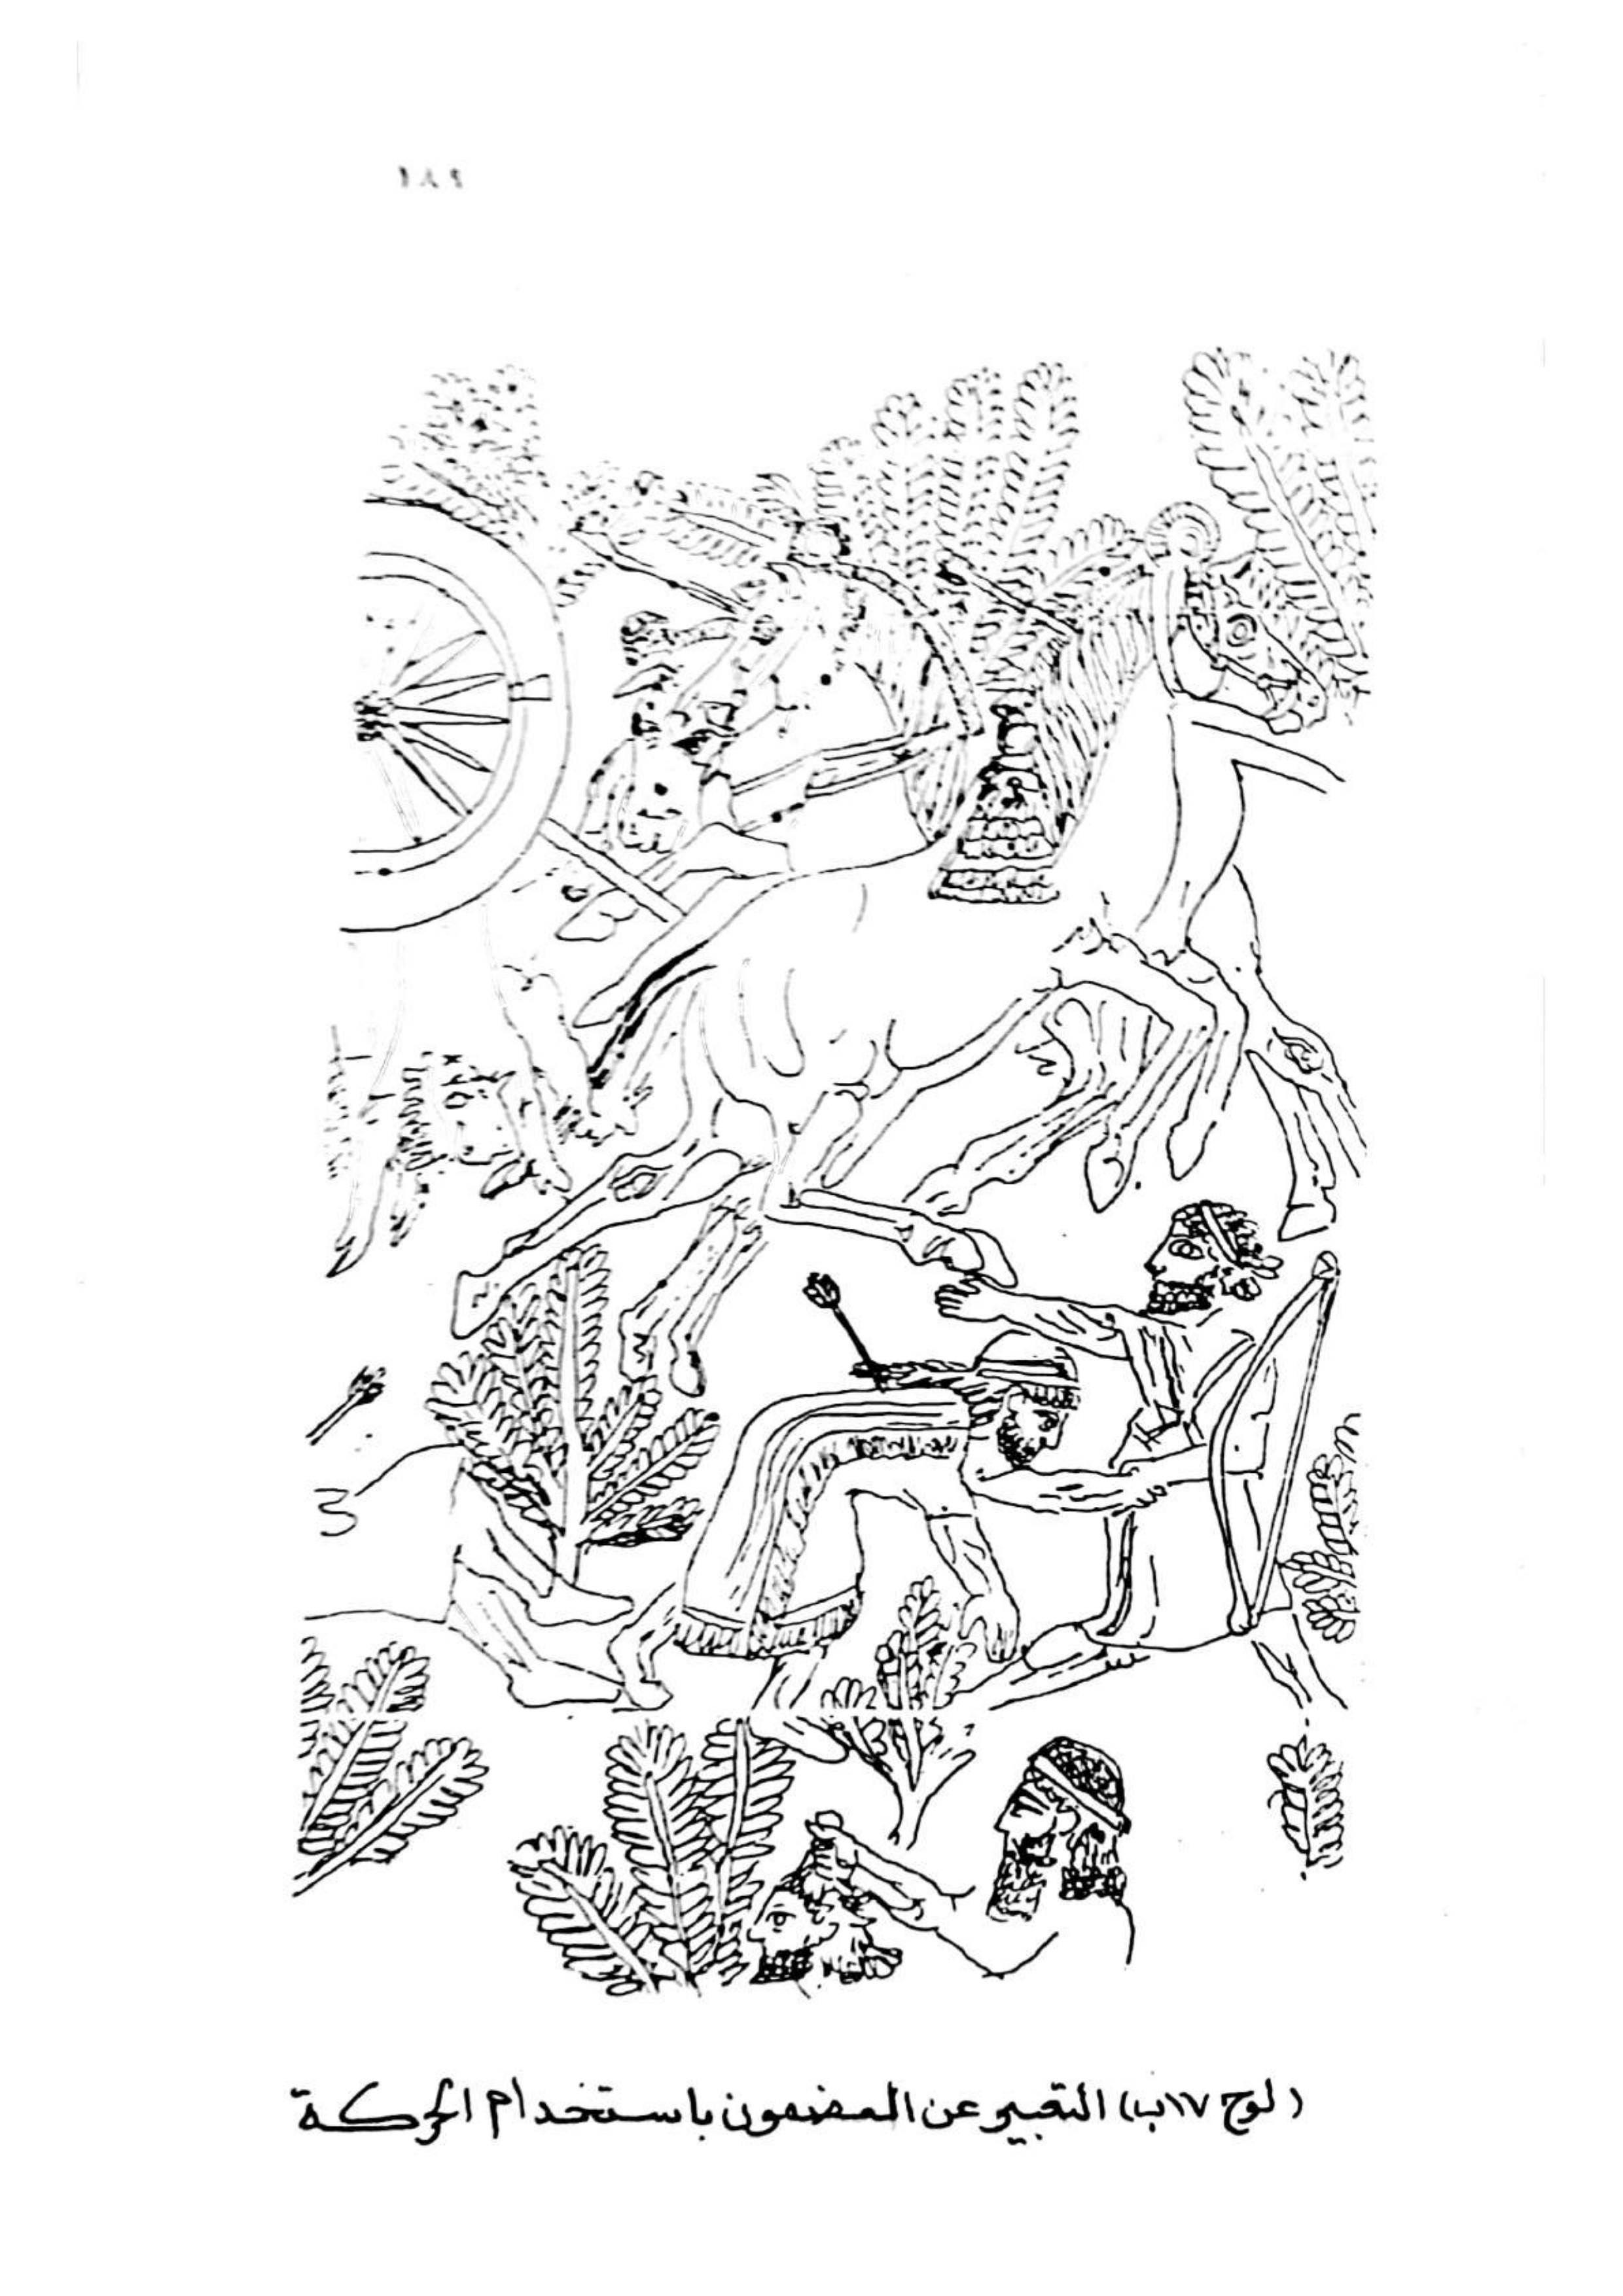 (لوح ١٧ب) التعبير عن المضمون باستخدام الحركة